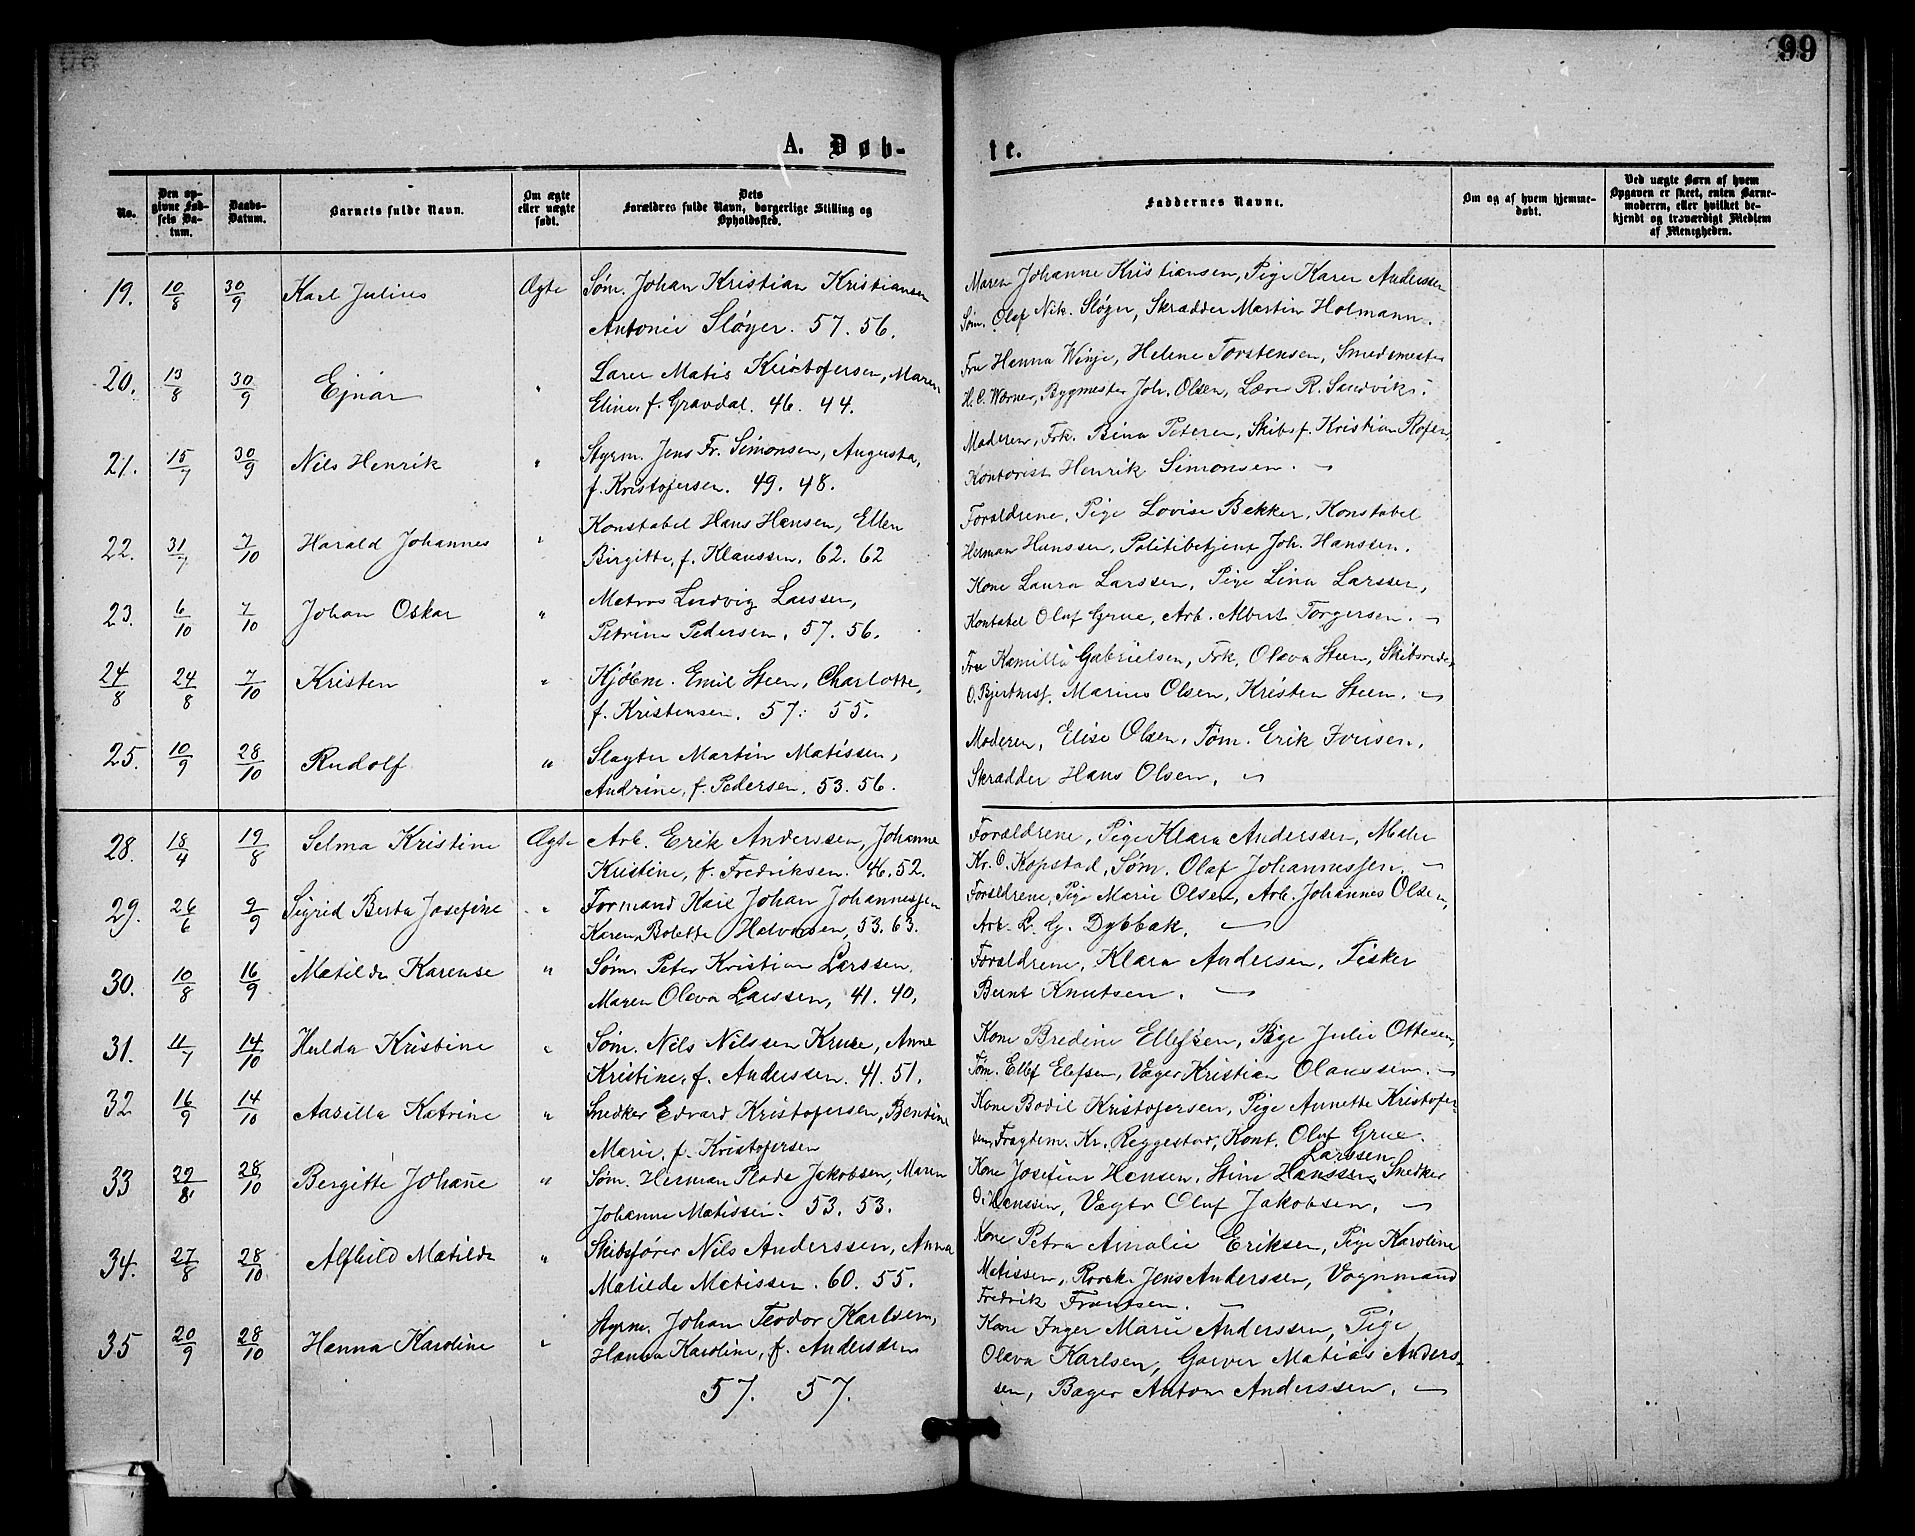 99
A. Døb-
te.
No.
Den op-
givne Fød-
sels Da-
tum.
Daabs-
Datum.
Barnets fulde Navn.
Om ægte
eller uægte
født.
Dets
Forældres fulde Navn, borgerlige Stilling og
Opholdssted.
Faddernes Navne.
Om og af hvem hjemme-
døbt.
Ved uægte Børn af hvem
Opgaven er skeet, enten Barne-
moderen, eller hvilket be-
kjendt og troværdigt Medlem
af Menigheden.
19. 10/8 30/9 Karl Julius Ægte Søm. Johan Kristian Kristiansen
Antonie Sløger. 57. 56.
Maren Johanne Kristiansen, Pige Karen Anderssen
Søm. Olaf Nik. Sløger, Skrædder Martin Holmann.
20. 13/8 30/9 Ejnar " Lærer Matis Kristofersen, Maren
Eline, f. Gravdal. 46. 44.
Fru Hanna Winje, Helene Torstensen, Smedmester
H. C. Wærner, Bygmester Joh. Olsen, Lærer R. Sandvik.
21. 15/7 30/9 Nils Henrik " Styrm. Jens Fr. Simonsen, Augusta,
f. Kristofersen. 49. 48.
Moderen, Frk. Bina Petersen, Skibsf. Kristian
Kontorist Henrik Simonsen.
22. 31/7 7/10 Harald Johannes " Konstabel Hans Hansen, Ellen
Birgitte, f. Klaussen. 62. 62
Forældrene, Pige Lovise Bakker, Konstabel
Herman Hanssen, Politibetjent Joh. Hanssen.
23. 6/10 7/10 Johan Oskar " Matros Ludvig Larssen,
Petrine Pedersen. 57. 56.
Kone Laura Larssen, Pige Lina Larssen,
Kontabel Oluf Grue, Arb. Albert Torgersen.
24/8 24/8 7/10 Kristen " Kjøbm. Emil Steen, Charlotte,
f. Kristensen. 57. 55.
Fru Kamilla Gabrielsen, Frk. Olava Steen, Skibsrede
O. Marius Olsen, Kristen Steen.
25. 10/9 28/10 Rudolf " Slagter Martin Matissen,
Andrine, f. Pedersen. 53. 56.
Moderen, Elise Olsen, Tøm. Erik Iversen,
Skrædder Hans Olsen.
28. 18/4 19/8 Selma Kristine Ægte Arb. Erik Anderssen, Johanne
Kristine, f. Fredriksen. 46. 52.
Forældrene, Pige Klara Anderssen, Maler
Kr. O. Kopstad, Søm. Olaf Johannessen.
29. 26/6 9/9 Sigrid Berta Josefine " Formand Karl Johan Johannessen
Karen Bolette Halvorsen, 53. 63.
Forældrene, Pige Marie Olsen, Arb. Johannes Olsen,
Arb. L. G. Dybbak.
30. 10/8 16/9 Matilde Karense " Søm. Peter Kristian Larssen,
Maren Olava Larssen, 41. 40.
Forældrene, Klara Andersen, Fisker
Bernt Knutsen.
31. 11/7 14/10 Hulda Kristine " Søm. Nils Nilssen Kruse, Anne
Kristine, f. Anderssen. 41. 51.
Kone Bredine Ellefsen, Pige Julie Ottesen,
Tøm. Ellef Elefsen, Væger Kristian Olaussen.
32 16/9 14/10 Aasilla Katrine " Snedker Edvard Kristofersen, Bentine
Marie, f. Kristofersen
Kone Bodil Kristofersen, Pige Annette Kristofer-
sen, Fragtem. Kr. Reggestad, Konst. Oluf Grue.
33 22/8 28/10 Bergitte Johane " Søm. Herman Plade Jakobsen, Maren
Johanne Matissen. 53. 53.
Larssen
Kone Josefine Hansen, Stine Hanssen, Snedker
O. Hanssen, Vægter Oluf Jakobsen.
34. 27/8 28/10 Alfhild Matilde " Skibsfører Nils Anderssen, Anna
Matilde Matissen. 60. 55.
Kone Petra Amalie Eriksen, Pige Karoline
Matissen, Rorsk. Jens Anderssen, Vognmand
Fredrik Frantsen.
35 20/9 28/10 Hanna Karoline " Styrm. Johan Teodor Karlsen,
Hanna Karoline, f. Anderssen
57. 57.
Kone Inger Marie Anderssen, Pige
Olava Karlsen, Garver Matias Anders-
sen, Bager Anton Anderssen.